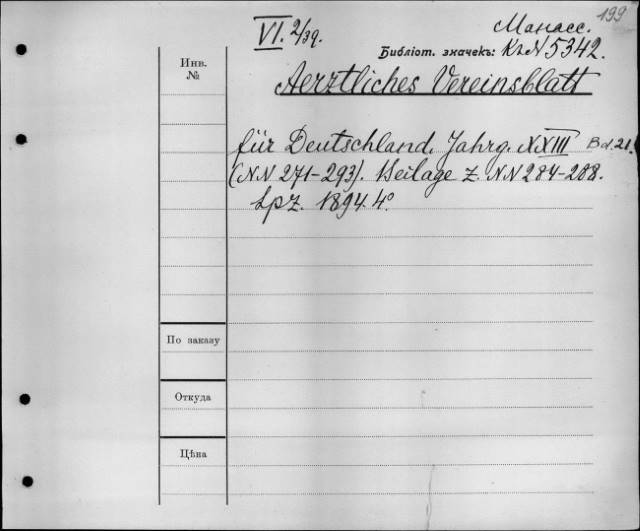 199
VI. 2/39.
Манасс.
Библіот. значекъ: Кг N 5342.
Инв. №
Aerztliches Vereinsblatt
für Deutschland. Jahrg. XXIII Bd. 21.
(NN 271-293). Beilage z. NN 284-288.
Lpz. 1894. 4°
По заказу
Откуда
Цѣна